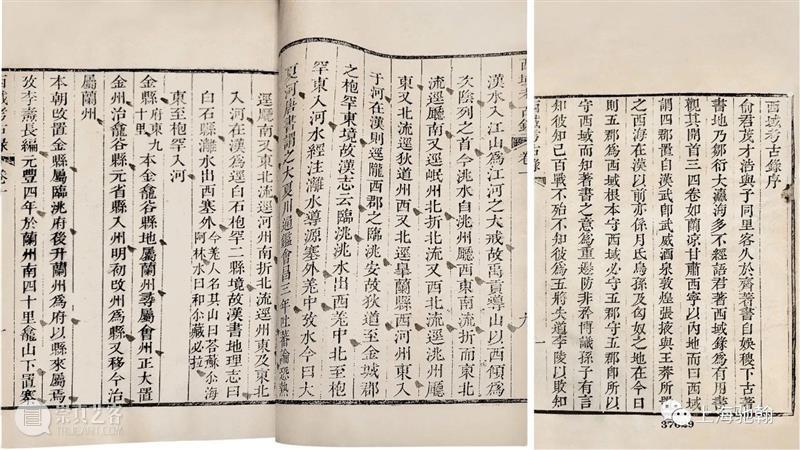 西域考古錄序
俞君茂才浩與予同里客久於齊著書自娛稷下古著
書地乃鄒衍大瀛海多不經語君著西域錄爲有用書
觀其開首三四卷如蘭涼甘肅西寧以內地而曰西域
謂四郡置自漢武卽武威酒泉敦煌張掖與王莽所置
之西海在漢以前亦係月氏烏孫及匈奴之地在今日
則五郡爲西域根本守西域必守五郡守五郡卽所以
守西域而知著書之意爲重邊防非矜博識孫子有言
知彼知己百戰不殆不知彼爲五將失道李陵以敗知
西域考古錄 一
西域考古錄 卷一 九
漢水入江爲江河之大戒故禹貢導山以西傾爲
次陰列之首今洮水自洮州廳西東南流折而東北
流逕廳南又逕岷州北折北流又西北流逕洮州廳
東又北流逕狄道州西又北逕臯蘭縣西河州東入
于河在漢則逕隴西郡之臨洮安故狄道至金城郡
之枹罕東境故漢志云臨洮洮水出西羌中北至枹
罕東入河水經注灕水導源塞外羌中故水今曰大
夏河唐書謂之大夏川通鑑會昌三年吐蕃論恐熱
逕廳南又東北流逕河州南折北流逕州東及東北
入河在漢爲逕白石枹罕二縣境故漢書地理志曰
白石縣灕水出西塞外今羌人名其山曰荅蘇爾海阿林水曰和爾藏必拉
東至枹罕入河
金縣府東九十里本金龕谷縣地屬蘭州尋屬會州正大置
金州治龕谷縣元省縣入州明初改州爲縣又移今治
屬蘭州
本朝改置金縣屬臨洮府後升蘭州爲府以縣來屬焉
攷李燾長編元豐四年於蘭州南四十里龕山下置寨
西域考古錄 卷一
上海驰翰
崇真艺客